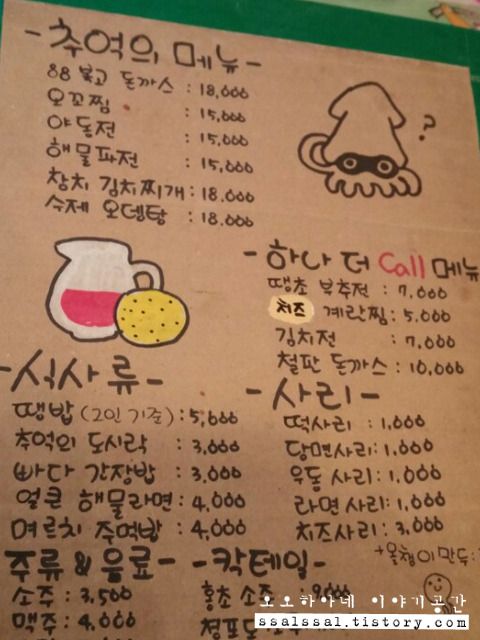 -추억의 메뉴-
88 불고 돈까스 : 18,000
오꼬찜 : 15,000
야동전 : 15,000
해물파전 : 15,000
참치 김치찌개 : 18,000
수제 오뎅탕 : 18,000
?
-하나 더 Call 메뉴
땡초 부추전 : 7,000
치즈 계란찜 : 5,000
김치전 : 7,000
철판 돈까스 : 10,000
-식사류-
땡밥 (2인 기준) : 5,000
추억의 도시락 : 3,000
빠다 간장밥 : 3,000
얼큰 해물라면 : 4,000
며르치 주먹밥 : 4,000
-사리-
떡사리 : 1,000
당면사리 : 1,000
우동 사리 : 1,000
라면 사리 : 1,000
치즈사리 : 3,000
+올챙이만두 :
주류 & 음료-
소주 : 3,500
맥주 : 4,000
-칵테일-
홍초 소주
청포도
오오하아네 이야기공간
ssalssal.tistory.com